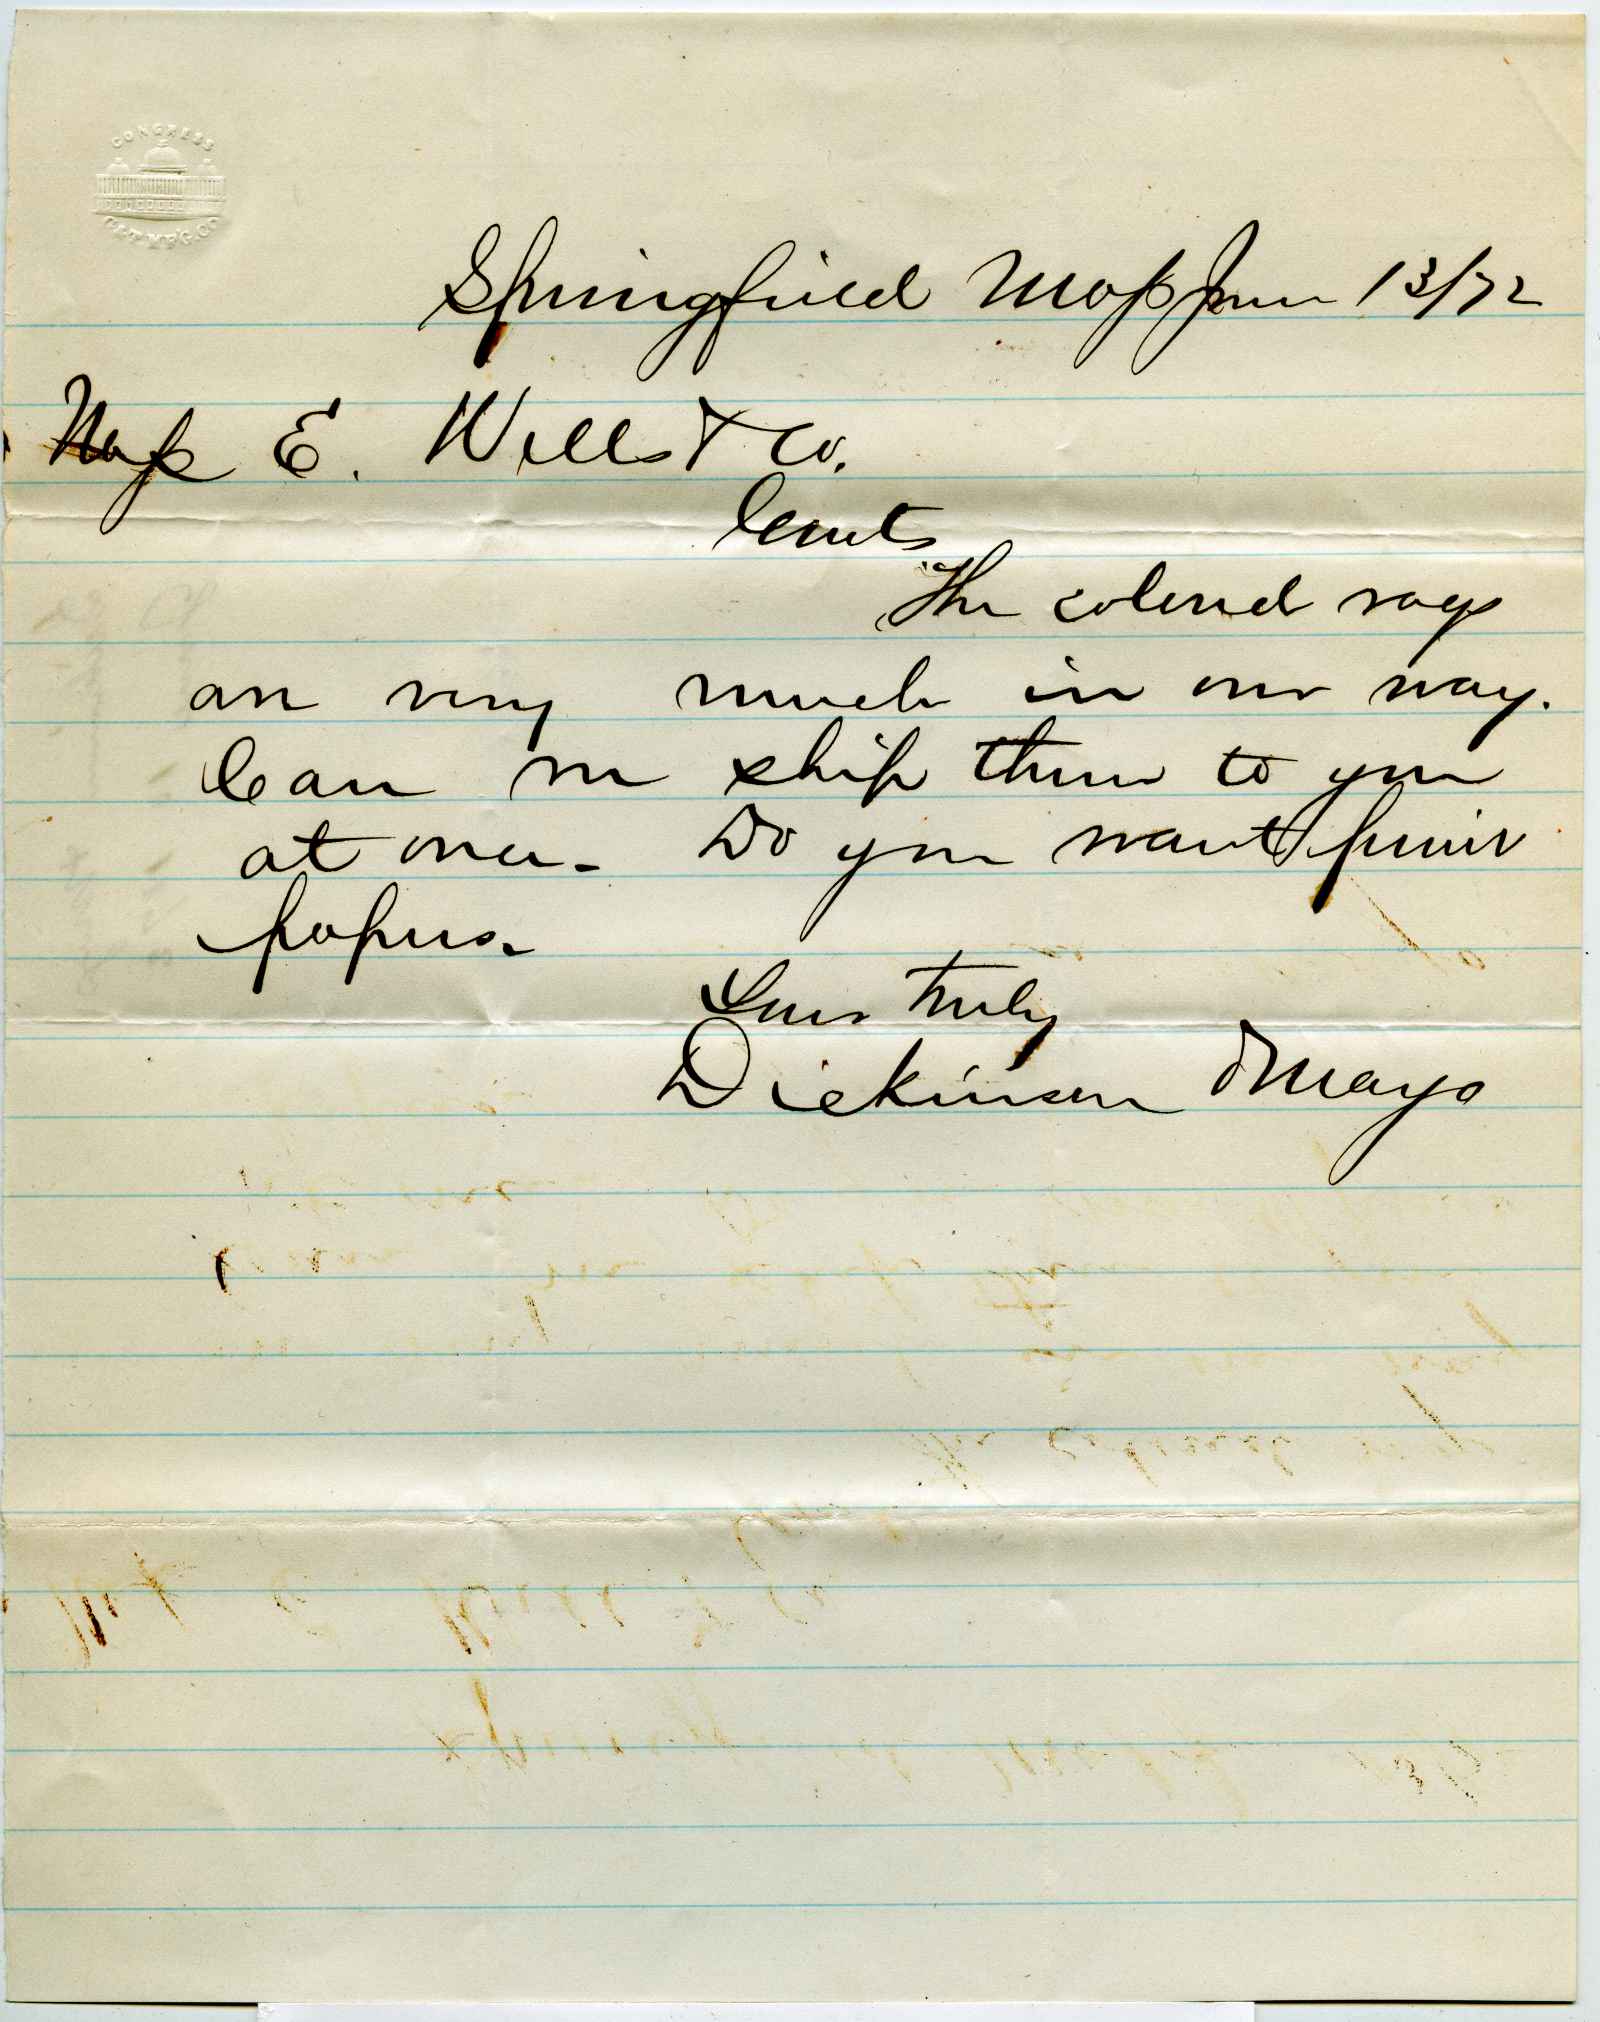 CONGRESS
P&P MF'G. CO
Springfield Mass June 13/72
Mess E. Wells & Co.
Gents
The colored rags
are very much in our way.
Can we ship them to you
at once. Do you want
papers.
Yours truly
Dickinson & Mayo